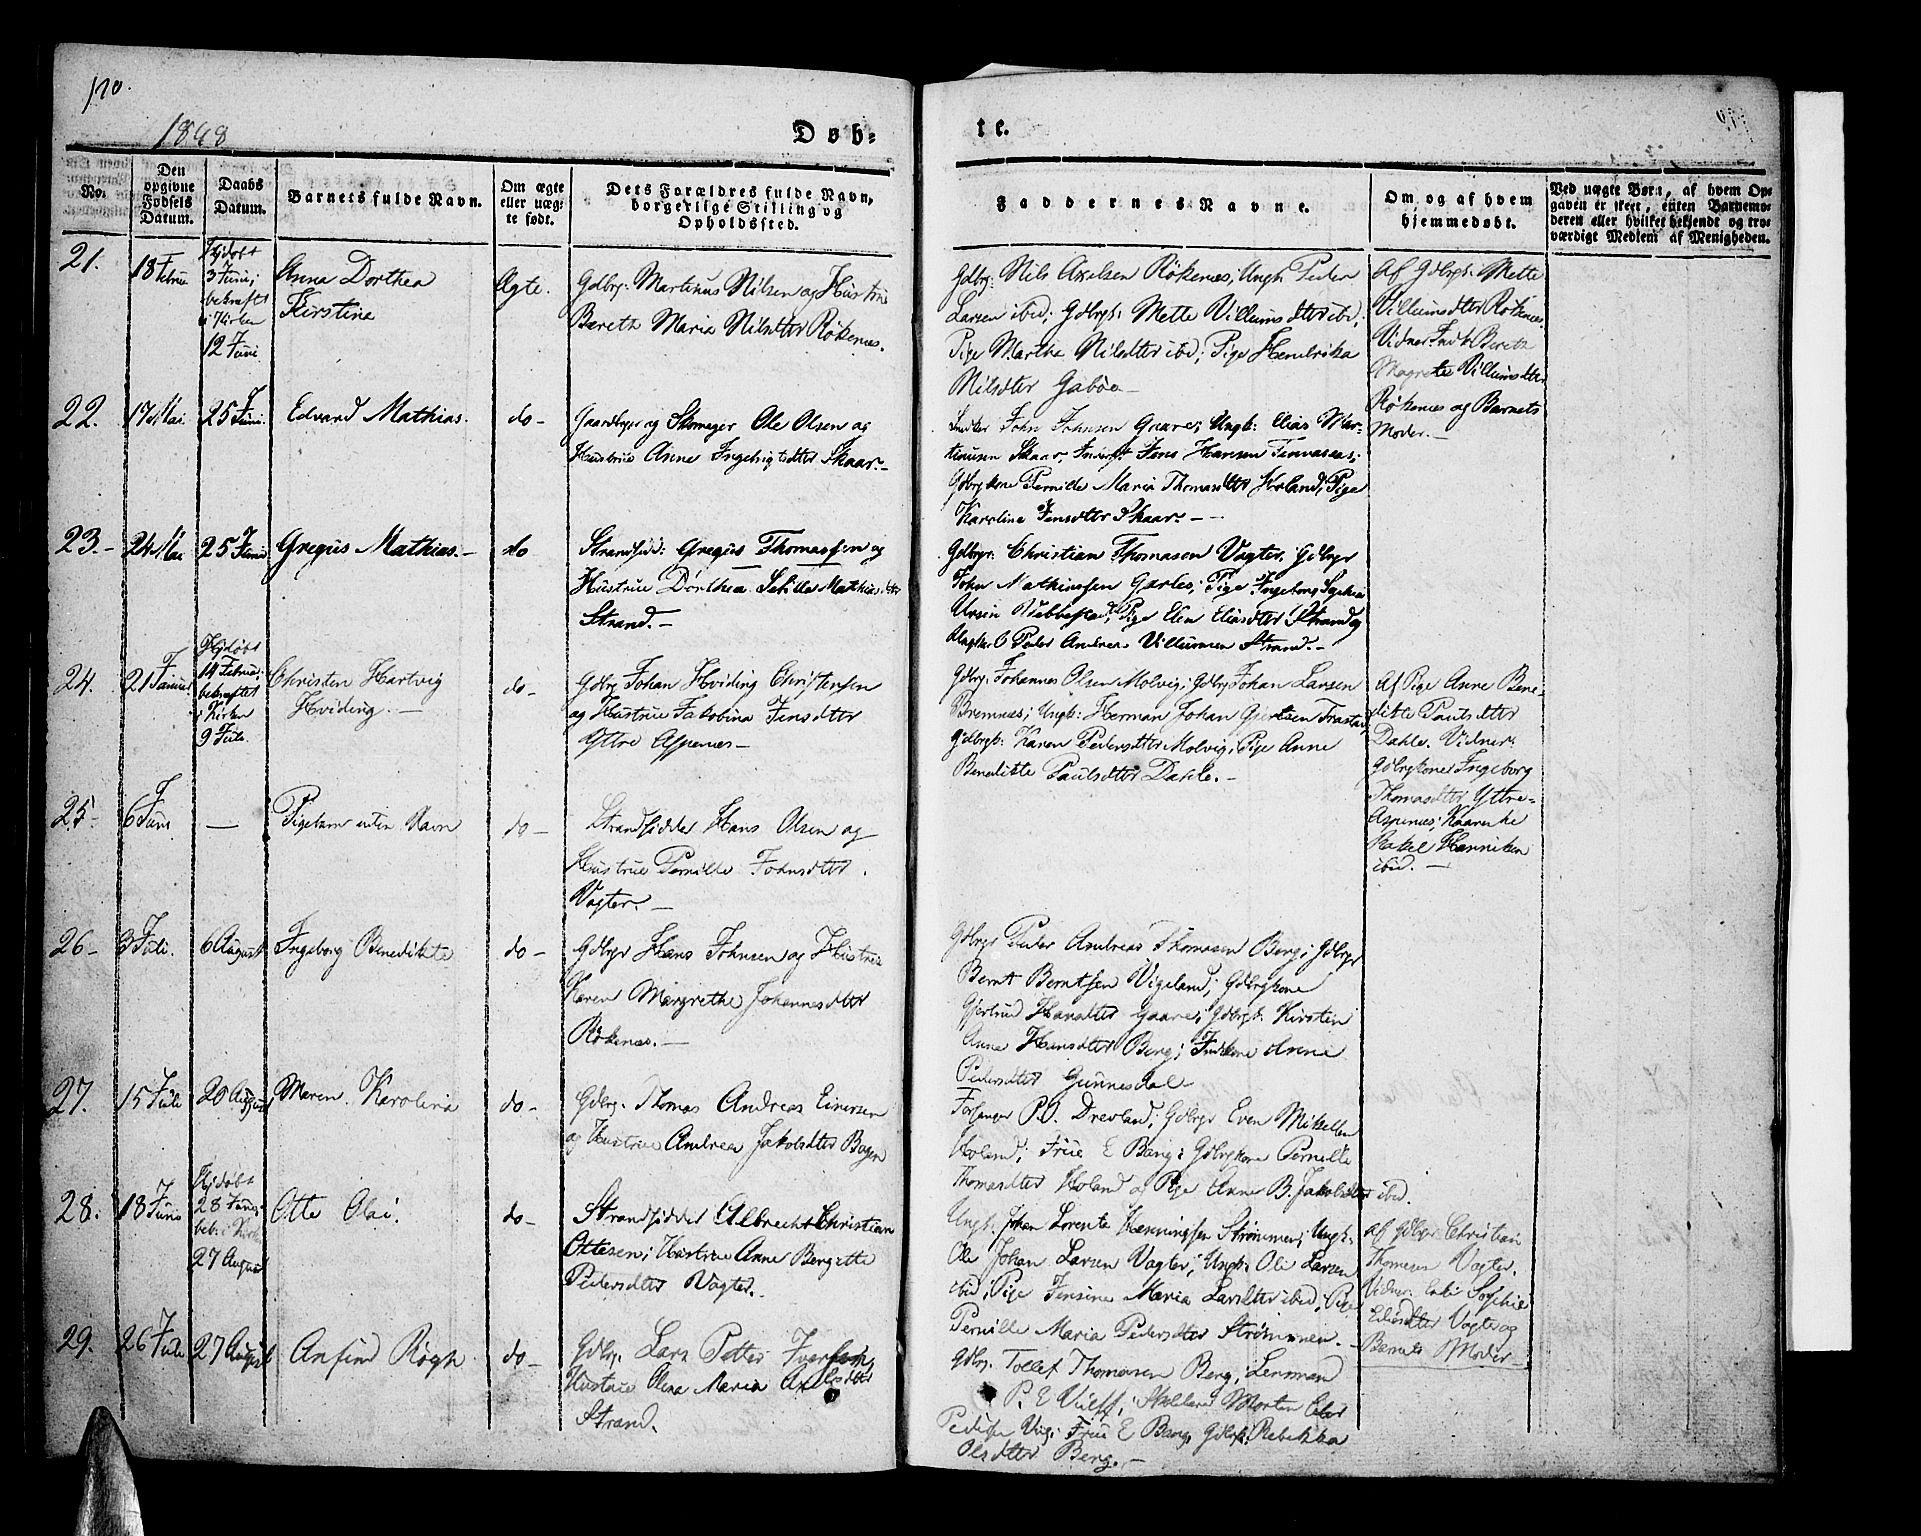 170.
1848
Døb-
te.
No.
Den opgivne Fødsels Datum.
Daabs Datum.
Barnets fulde Navn.
Om ægte eller uægte født.
Dets Forældres fulde Navn, borgerlige Stilling og Opholdssted.
Faddernes Navne.
Om og af hvem hjemmedøbt.
Ved uægte Børn, af hvem Opgaven er skeet, enten Barnemoderen eller hvilket bekjendt og troværdigt Medlem af Menigheden.
21.
18 Februar
Hjdøbt
3 Juni;
bekræftet
i Kirken
12 Juni
Anna Dorthea
Kirstina
Ægte.
Gdbrg: Martinus Nilsen og Hustrue
Bereth Maria Nilsdter Røkenæs.
Gdbrg: Nils Axelsen Røkenæs, Ungk. Peder
Larsen ibid; Gdbrgk: Mette Villumsdter ibid;
Pige Martha Nilsdter ibid; Pige Hendrika
Nilsdter Gabøe
Af Gdbrgk: Mette
Villumsdter Røkenæs.
Vidner: Bereth
Magrete Villumsdter
Røkenæs og Barnets
Moder.
22.
17 Mai
25 Juni
Edvard Mathias.
do
Gaardbrger og Skomager Ole Olsen og
Hustrue Anne Ingebrigtsdter Skaar.
John Johnsen Gaare; Ungk: Elias Mar-
tinusen Skaar, Jens Hansen
Gdbrgkone Pernille Maria Thomasdter Holand; Pige
Karoline Jensdter Skaar.
23.
24 Mai
25 Juni
Gregus Mathias.
do
Strandsid: Gregus Thomassen og
Hustrue Dorthea Mathiasdter
Strand.
Gdbrgr: Christian Thomasen Vagter; Gdbrgr
John Mathiassen Pige Ingeborg
Pige Elen Eliasdter Strand og
Ungkr. O Peder Andreas Villumsen Strand.
24.
21 Januar
Hjdøbt
14 Februar;
bekræftet
i Kirken
9 Juli.
Christen Hartvig
Hviding.
do
Gdbrg Johan Hviding Christensen
og Hustrue Jakobina Jensdter
Yttre Aspenes
Gdbrg: Johannes Olsen Molvig; Gdbrg Johan Larsen
Bremnes; Ungk: Herman Johan Gjertsen Trastad,
Gdbrgk: Karen Pedersdter Molvig; Pige Anne
Benedikte Paulsdter Dahle.
af Pige Anne Bene-
dikte Paulsdter
Dahle. Vidner:
Gdbrgkone Ingeborg
Thomasdter Yttre-
Aspenes;
Henriksen
ibid.
25
6 Juni
Pigebarn uden Navn
do
Strandsidder Hans Olsen og
Hustrue Pernille Johnsdter
Vagter.
26
3 Juli.
6 August
Ingeborg Benedikte
do
Gdbrgr Hans Johnsen og Hustrue
Karen Margrethe Johannesdter
Røkenæs.
Gdbrgr Peder Andreas Thomasen Berg; Gdbrgr
Bernt Berntsen Vigeland; Gdbrgkone
Gjertrud Hansdter Gaare; Gdbrgk: Kirsten
Anne Hansdter Berg; Indkone Anne
Pedersdter Gunnesdal
27.
15 Juli
20 August
Maren Karolina
do
Gdbrg. Thomas Andreas Einersen
og Hustrue Andrea Jakobsdter Bogen
Forsanger P. O. Drevland; Gdbrgr Even Mikkelsen
Holand; Frue E Bang; Gdbrgkone Pernille
Thomasdter Holand og Pige Anne B. Jakobsdter ibid.
28.
18 Juni
Hjdøbt
28 Juni
bekr: i Kirk
27 August
Otte Olai.
do
Strandsidder Albrecht Christian
Ottesen; Hustrue Anne Bergitte
Pedersdter Vagter.
Ungk: Johan Lorents Henningsen Strømmen; Ungk:
Ole Johan Larsen Vagter; Ungk: Ole Larsen
ibid; Pige Jensine Maria Larsdter ibid; Pige
Pernille Maria Pedersdter Strømmen.
af Gdbrgr Christian
Thomesen Vagter.
Vidner: Enke Sophie
Vagter og
Barnets Moder
29.
26 Juli
27 August
Anfind Røgh
do
Gdbrg. Lars Petter Iversen,
Hustrue Olena Maria Axelsdtter
Strand.
Gdbrg. Tollef Thomasen Berg; Lensmand
P. E Vulff; Skollærer Morten Elias
Frue E Bang, Gdbrgk: Rebekka
Olsdtter Berg.